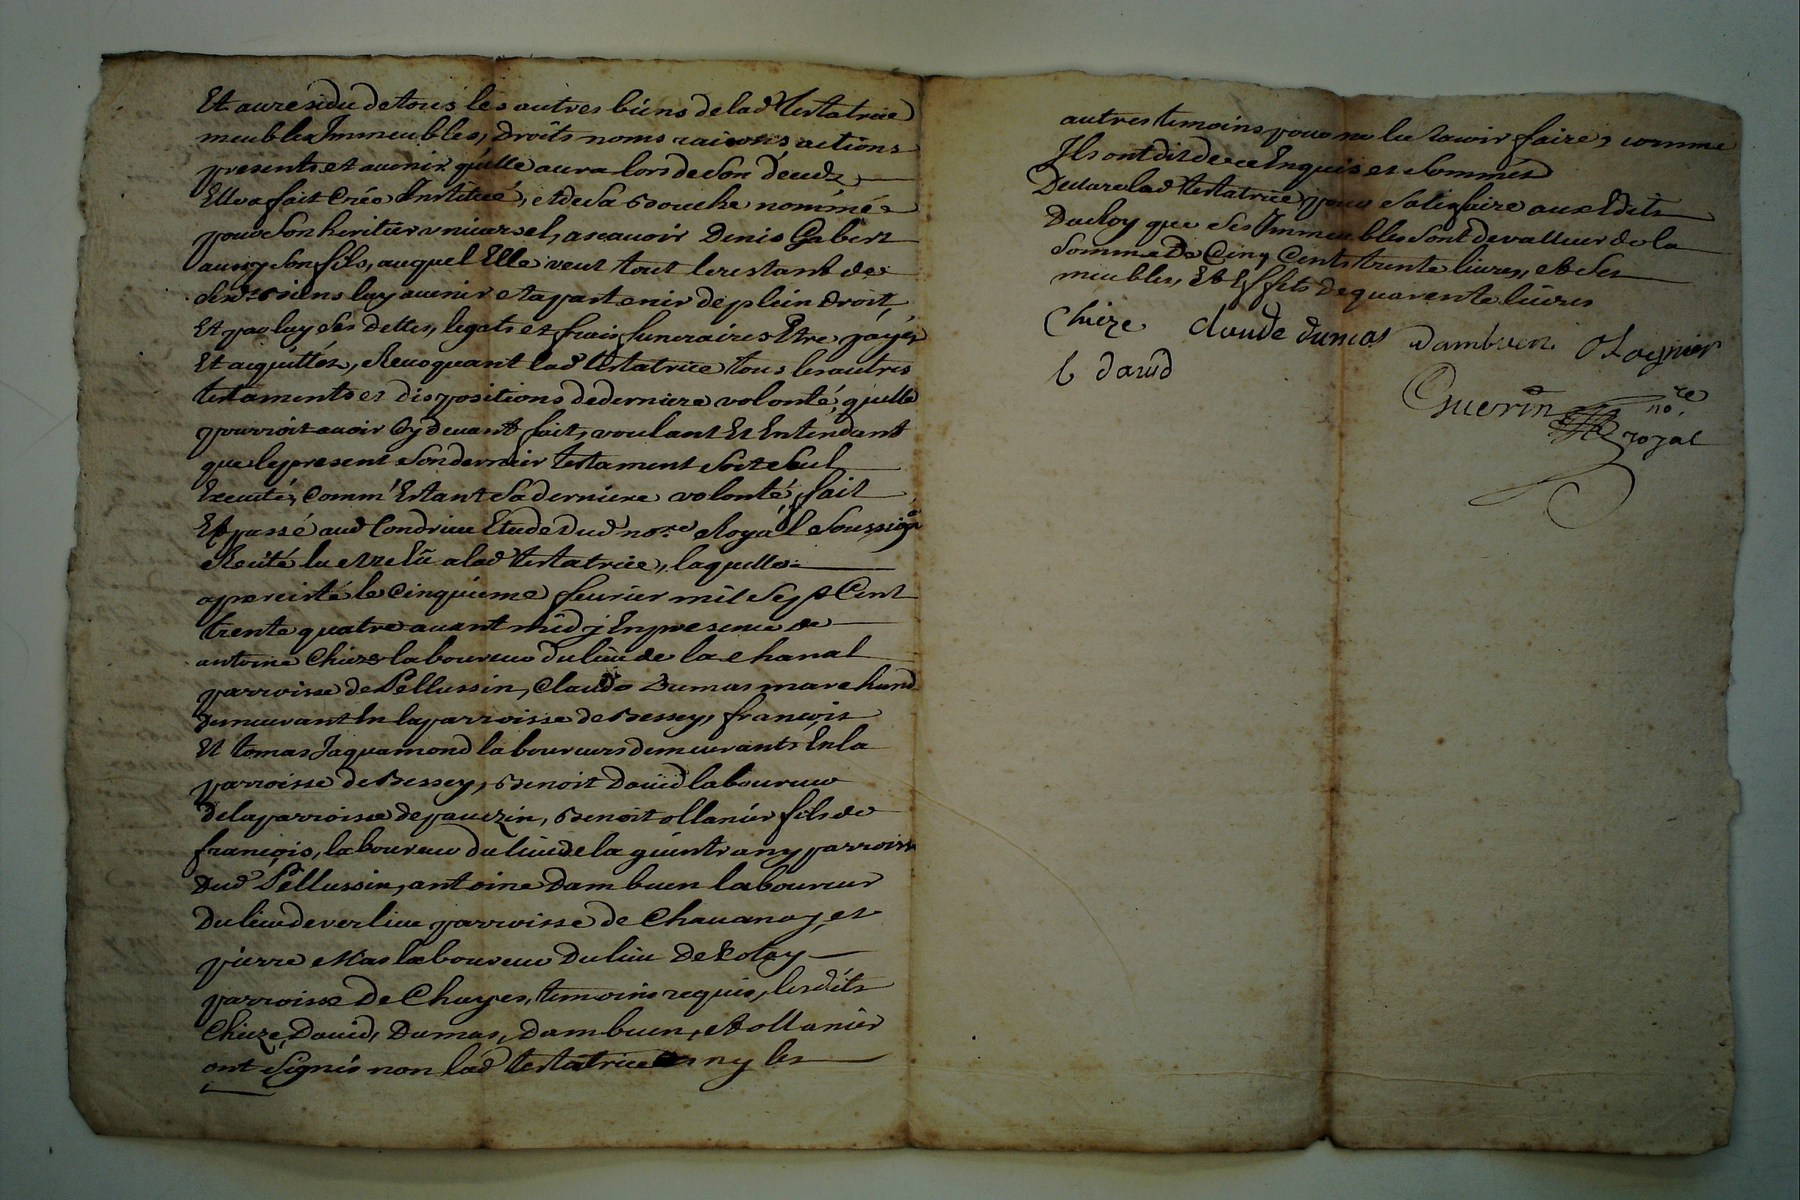 Et au residu de tous les autres biens de lad testatrice
meubles Immeubles, Droits noms raisons actions
presents et auenir qu'elle aura lors de son deceds
Elle a fait Créé Institué, et de sa Bouche nommé
pour son heritier vniuersel, ascauoir Denis Gabert
aussy son fils, auquel Elle veut tout le restant de
sesd. biens luy auenir et apartenir de plein droit,
Et par luy ses dettes, legats et frais funeraires Etre payés
Et acquittés, Reuoquant lad testatrice tous les autres
testaments et dispositions de derniere volonté, qu'elle
pourroit auoir Cy deuant fait, voulant Et Entendant
que le present son dernier testament soit seul
Executé, Comm' Estant sa derniere volonté, fait
Et passé aud Condrieu Etude dud no.re Royal soussigé
Recité lu et relu a lad testatrice, laquelle
a persisté le Cinquieme feurier mil Sept Cent
trente quatre auant midj En presence de
antoine Chieze laboureur du lieu de la Chanal
parroisse de Pellussin, Claude Dumas marchand
demeurant En la parroisse de Bessey, francois
Et tomas Jaquamond laboureurs demeurants En la
parroisse de Bessey, Benoit Dauid laboureur
de la parroisse de pauezin, Benoit ollanier fils de
francois, laboureur du lieu de la parroisse
Dud Pellussin, antoine Dambuen laboureur
Du lieu de verlieu parroisse de Chauanay, et
pierre Mas laboureur Du lieu De
parroisse De Chuyes, temoins requis, lesdits
Chieze, Dauid, Dumas, Dambuen, et ollanier
ont signés non lad testatrice ny les
autres temoins pour ne le scauoir faire, comme
Ils ont dit de ce Enquis et sommés
Declare lad testatrice pour satisfaire aux Edits
Du Roy que ses Immeubles sont de valleur de la
somme De Cinq Cents trente liures, et ses
meubles, Et Effets de quarente liures
Chieze claude dumas dambuen Olagnier
b dauid
Guerin no.re
royal